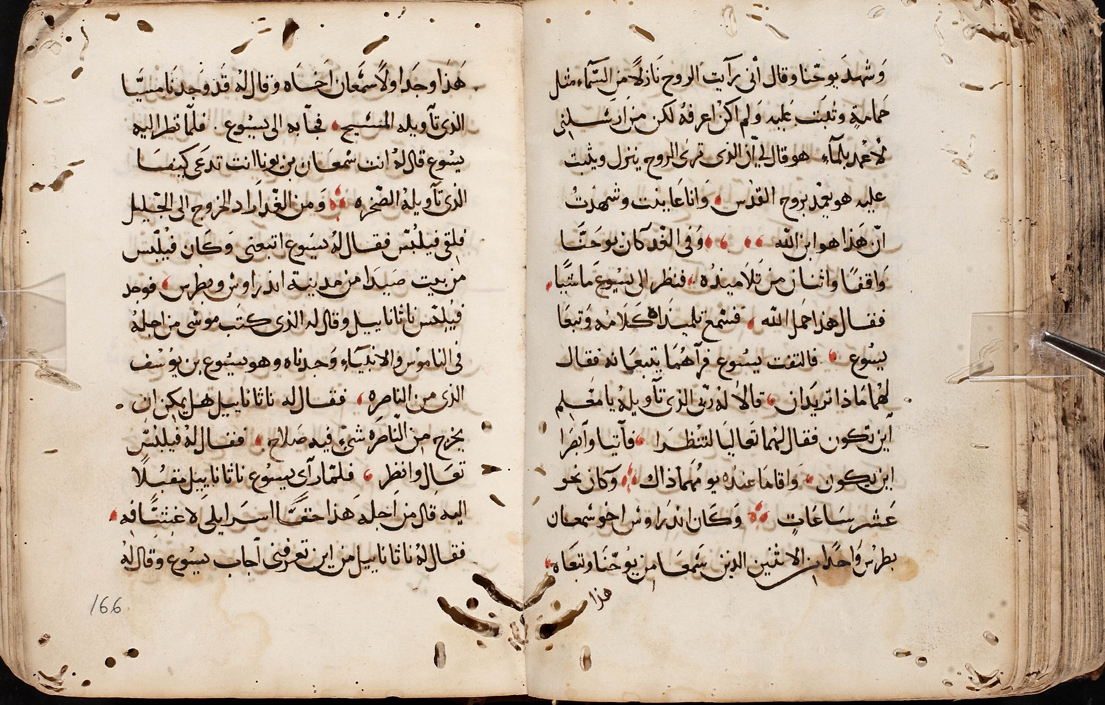 وشهد يوحنا وقال اني رآيت الروح نازلاً من السّماء مثل
حمامةٍ وثبت عليه ولم اكن اعرفهُ لكن من ارسلني
لاعمد بالماءِ هو قال لي ان الذى ترى الروح ينزل ويثبت
عليه هو يعمد بروح القدس وانا عاينت وشهدتُ
انّ هذا هو ابن الله وفى الغد كان يوحنّا
واقفًا واثنان من تلاميذه فنظر الى يسوع ماشيًا
فقال هذا حمل الله فسمع تلميذاه كلامه وتبعا
يسوع فالتفت يسوع فرآهُما يتبعانه فقال
لهُما ماذا تريدان قالا له ربّى الذى تآويلهُ يا معلم
اين تكون فقال لهُما تعاليا لتنظرا فآتيا وآبصرا
اين يكون واقاما عنده يومُهما ذاك وكان نحو
عشر ساعاتٍ وكان اندراوس اخو شمعان
بطرس واحدًا من الاثنين الذين سمعا من يوحّنا وتبعاه
هذا
هَذا وجَدا ولاً سمعان اخاه وقال لهُ قد وجدنا مسيّا
الذى تآويله المسيح فجآ به الى يسوع فلمّا نظر اليه
يسوع قال لهُ انت سمعان بن يونا انت تدعى كيفا
الذى تآويلهُ الصّخره ومن الغد آراد الخروج الى الجليل
فلقى فيلبّس فقال لهُ يسوع اتبعنى وكان فيلبّس
من بيت صيدا من مدينة اندراوس وبطرس فوجد
فيلبّس ناثانا ييل وقال له الذى كتب موسى من اجلهُ
فى الناموس والانبيآءِ وجدناه وهو يسوع بن يوسف
الذى من الناصره فقال له ناثانا ييل هل يمكن ان
يخرج من النّاصره شىءٍ فيه صلاح فقال لهُ فيلبّس
تعال وانظر فلمّا رآى يسوع ناثانا ييل مقبلًا
اليه قال من اجله هذا حقًّا اسرايلى لا غشّ فيه
فقال لهُ ناثانا ييل من اين تعرفنى آجاب يسوع وقال لهُ
166